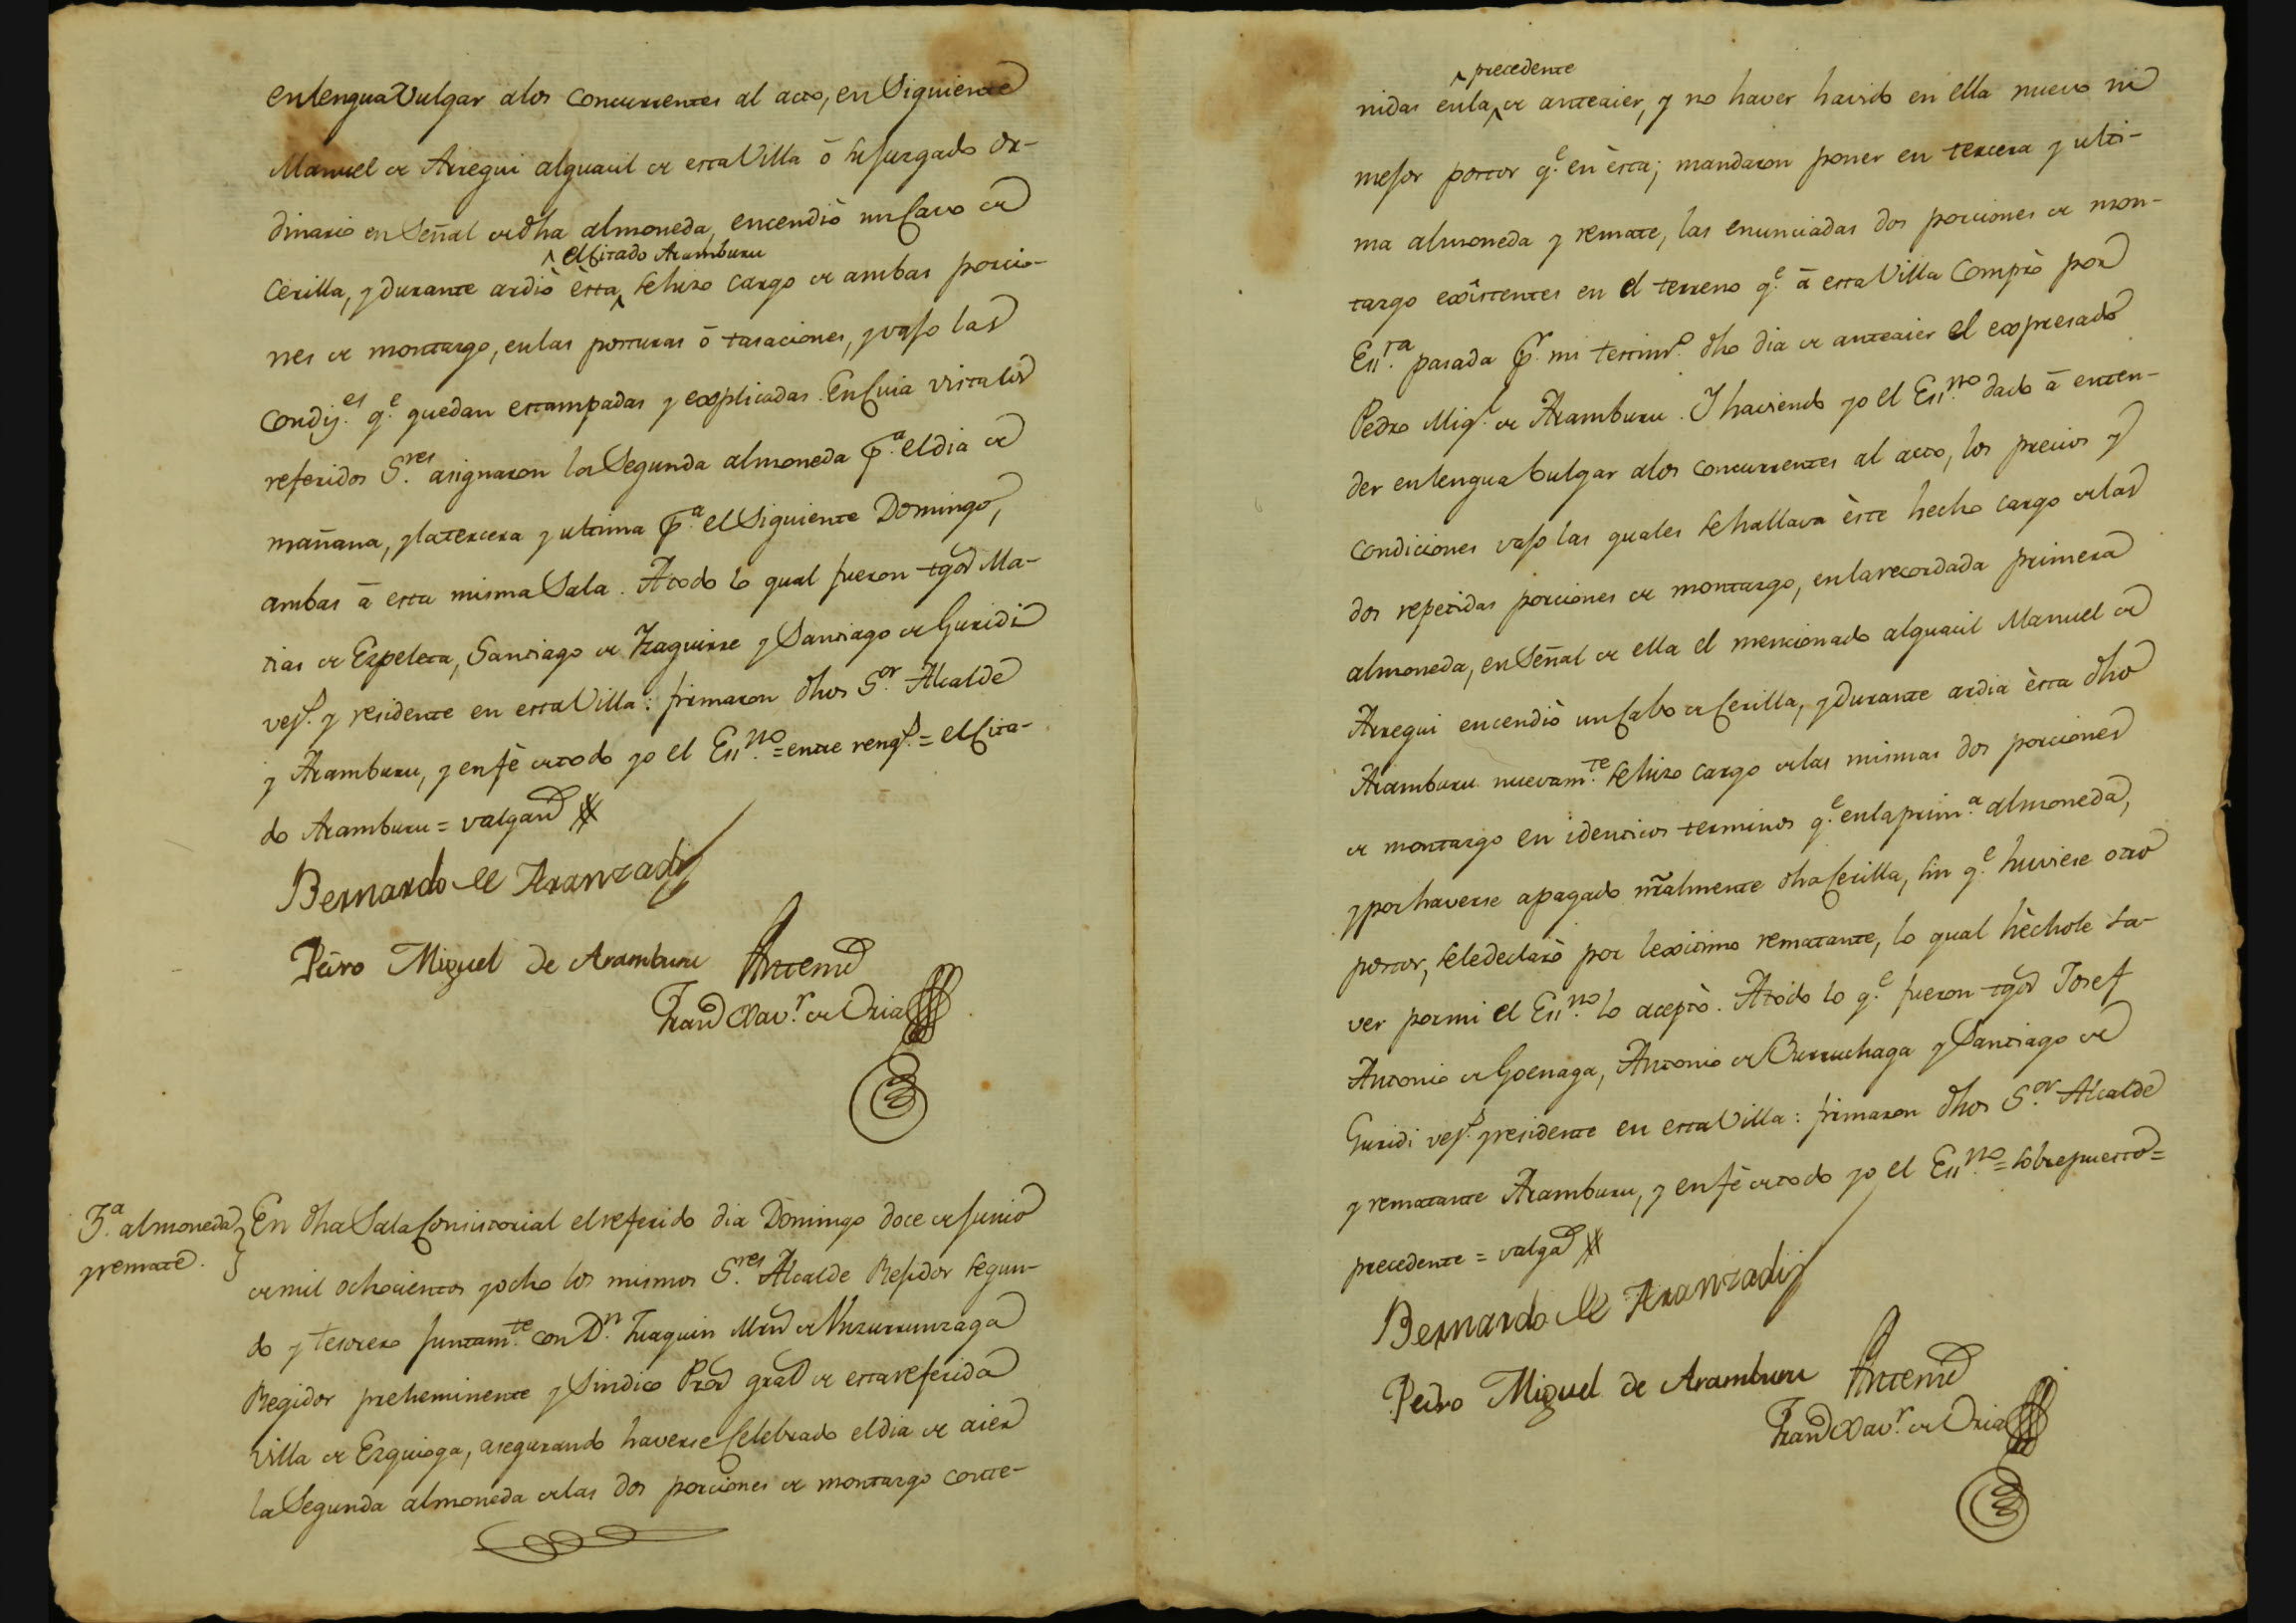 en lengua Vulgar a los concurrentes al acto, en Siguiente
Manuel de Arregui alguacil de esta Villa ô su Juzgado Or-
dinario en Señal de dha almoneda, encendiò un Cavo de
^ el Citado Aramburu
Cerilla, y durante ardiò èsta ^ se hizo cargo de ambas porcio-
nes de montazgo, en las posturas ô tasaciones, y vajo las
condiz.es q.e quedan estampadas y explicadas. En Cuia vista los
referidos S.res asignaron la Segunda almoneda p.a el dia de
mañana, y la tercera y ultima p.a el Siguiente Domingo,
ambas â esta misma Sala. A todo lo qual fueron tgos Ma-
tias de Ezpeleta, Santiago de Yzaguirre y Santiago de Guridi
vez.s y residente en esta Villa: firmaron dhos S.or Alcalde
y Aramburu, y en fè de todo yo el Ess.no = entre reng.s = el Cita-
do Aramburu = valgan
Bernardo de Aranzadi
Pedro Miguel de Aramburu Antemi
Fran Xav.r de Oria
3.a almoneda
y remate.
En dha Sala Consistorial el referido dia Domingo doce de Junio
de mil ochocientos y ocho los mismos S.res Alcalde Rejidor segun-
do y tesorero Juntam.te con D.n Juaquin Mrn de Unzurrunzaga
Regidor preheminente y Sindico Pror gral de esta referida
Villa de Ezquioga, asegurando haverse Celebrado el dia de aier
la Segunda almoneda de las dos porciones de montazgo conte-
^ precedente
nidas en la ^ de anteaier, y no haver havido en ella nuevo ni
mejor postor q.e en èsta; mandaron poner en tercera y ulti-
ma almoneda y remate, las enunciadas dos porciones de mon-
tazgo existentes en el terreno q.e â esta Villa Comprò por
Ess.ra pasada p.r mi testim.o dho dia de anteaier el expresado
Pedro Mig.l de Aramburu. Y haviendo yo el Ess.no dado â enten-
der en lengua bulgar a los concurrentes al acto, los precios y
condiciones vajo las quales se hallava èste hecho cargo de las
dos repetidas porciones de montazgo, en la recordada primera
almoneda, en Señal de ella el mencionado alguacil Manuel de
Arregui encendiò un Cabo de Cerilla, y durante ardia èsta dho
Aramburu nuevam.te se hizo cargo de las mismas dos porciones
de montazgo en identicos terminos q.e en la prim.a almoneda,
y por haverse apagado nralmente dha Cerilla, sin q.e huviese otro
postor, se le declarò por lexitimo rematante, lo qual hèchole sa-
ver por mi el Ess.no lo aceptò. A todo lo q.e fueron tgos Josef
Antonio de Goenaga, Antonio de Burruchaga y Santiago de
Guridi vez.s y residente en esta Villa: firmaron dhos S.or Alcalde
y rematante Aramburu, y en fè de todo yo el Ess.no = sobrepuesto =
precedente = valga
Bernardo de Aranzadi
Pedro Miguel de Aramburu Antemi
Fran Xav.r de Oria